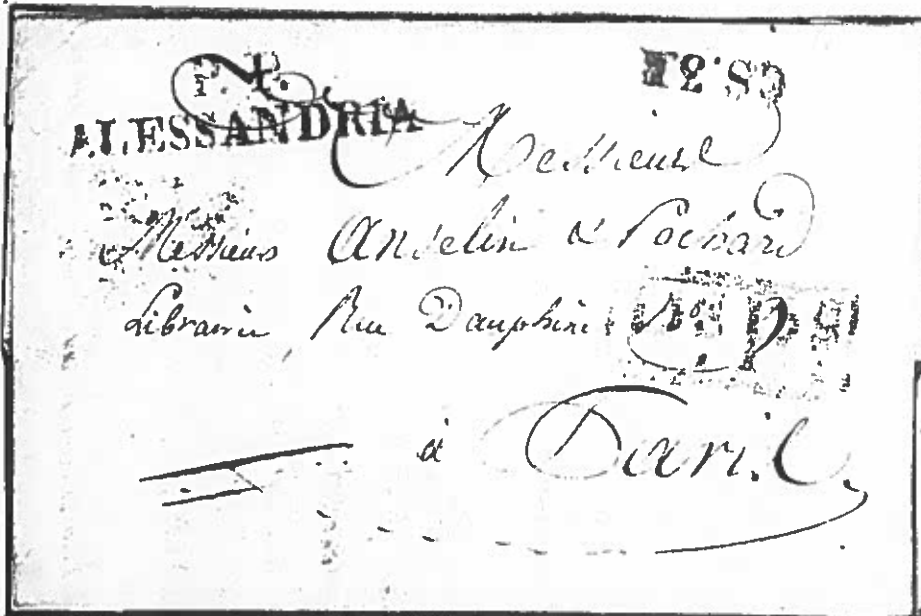 ALESSANDRIA
Messieurs
Messieurs Anselin & Pochard
Libraires Rue Dauphine
à Paris